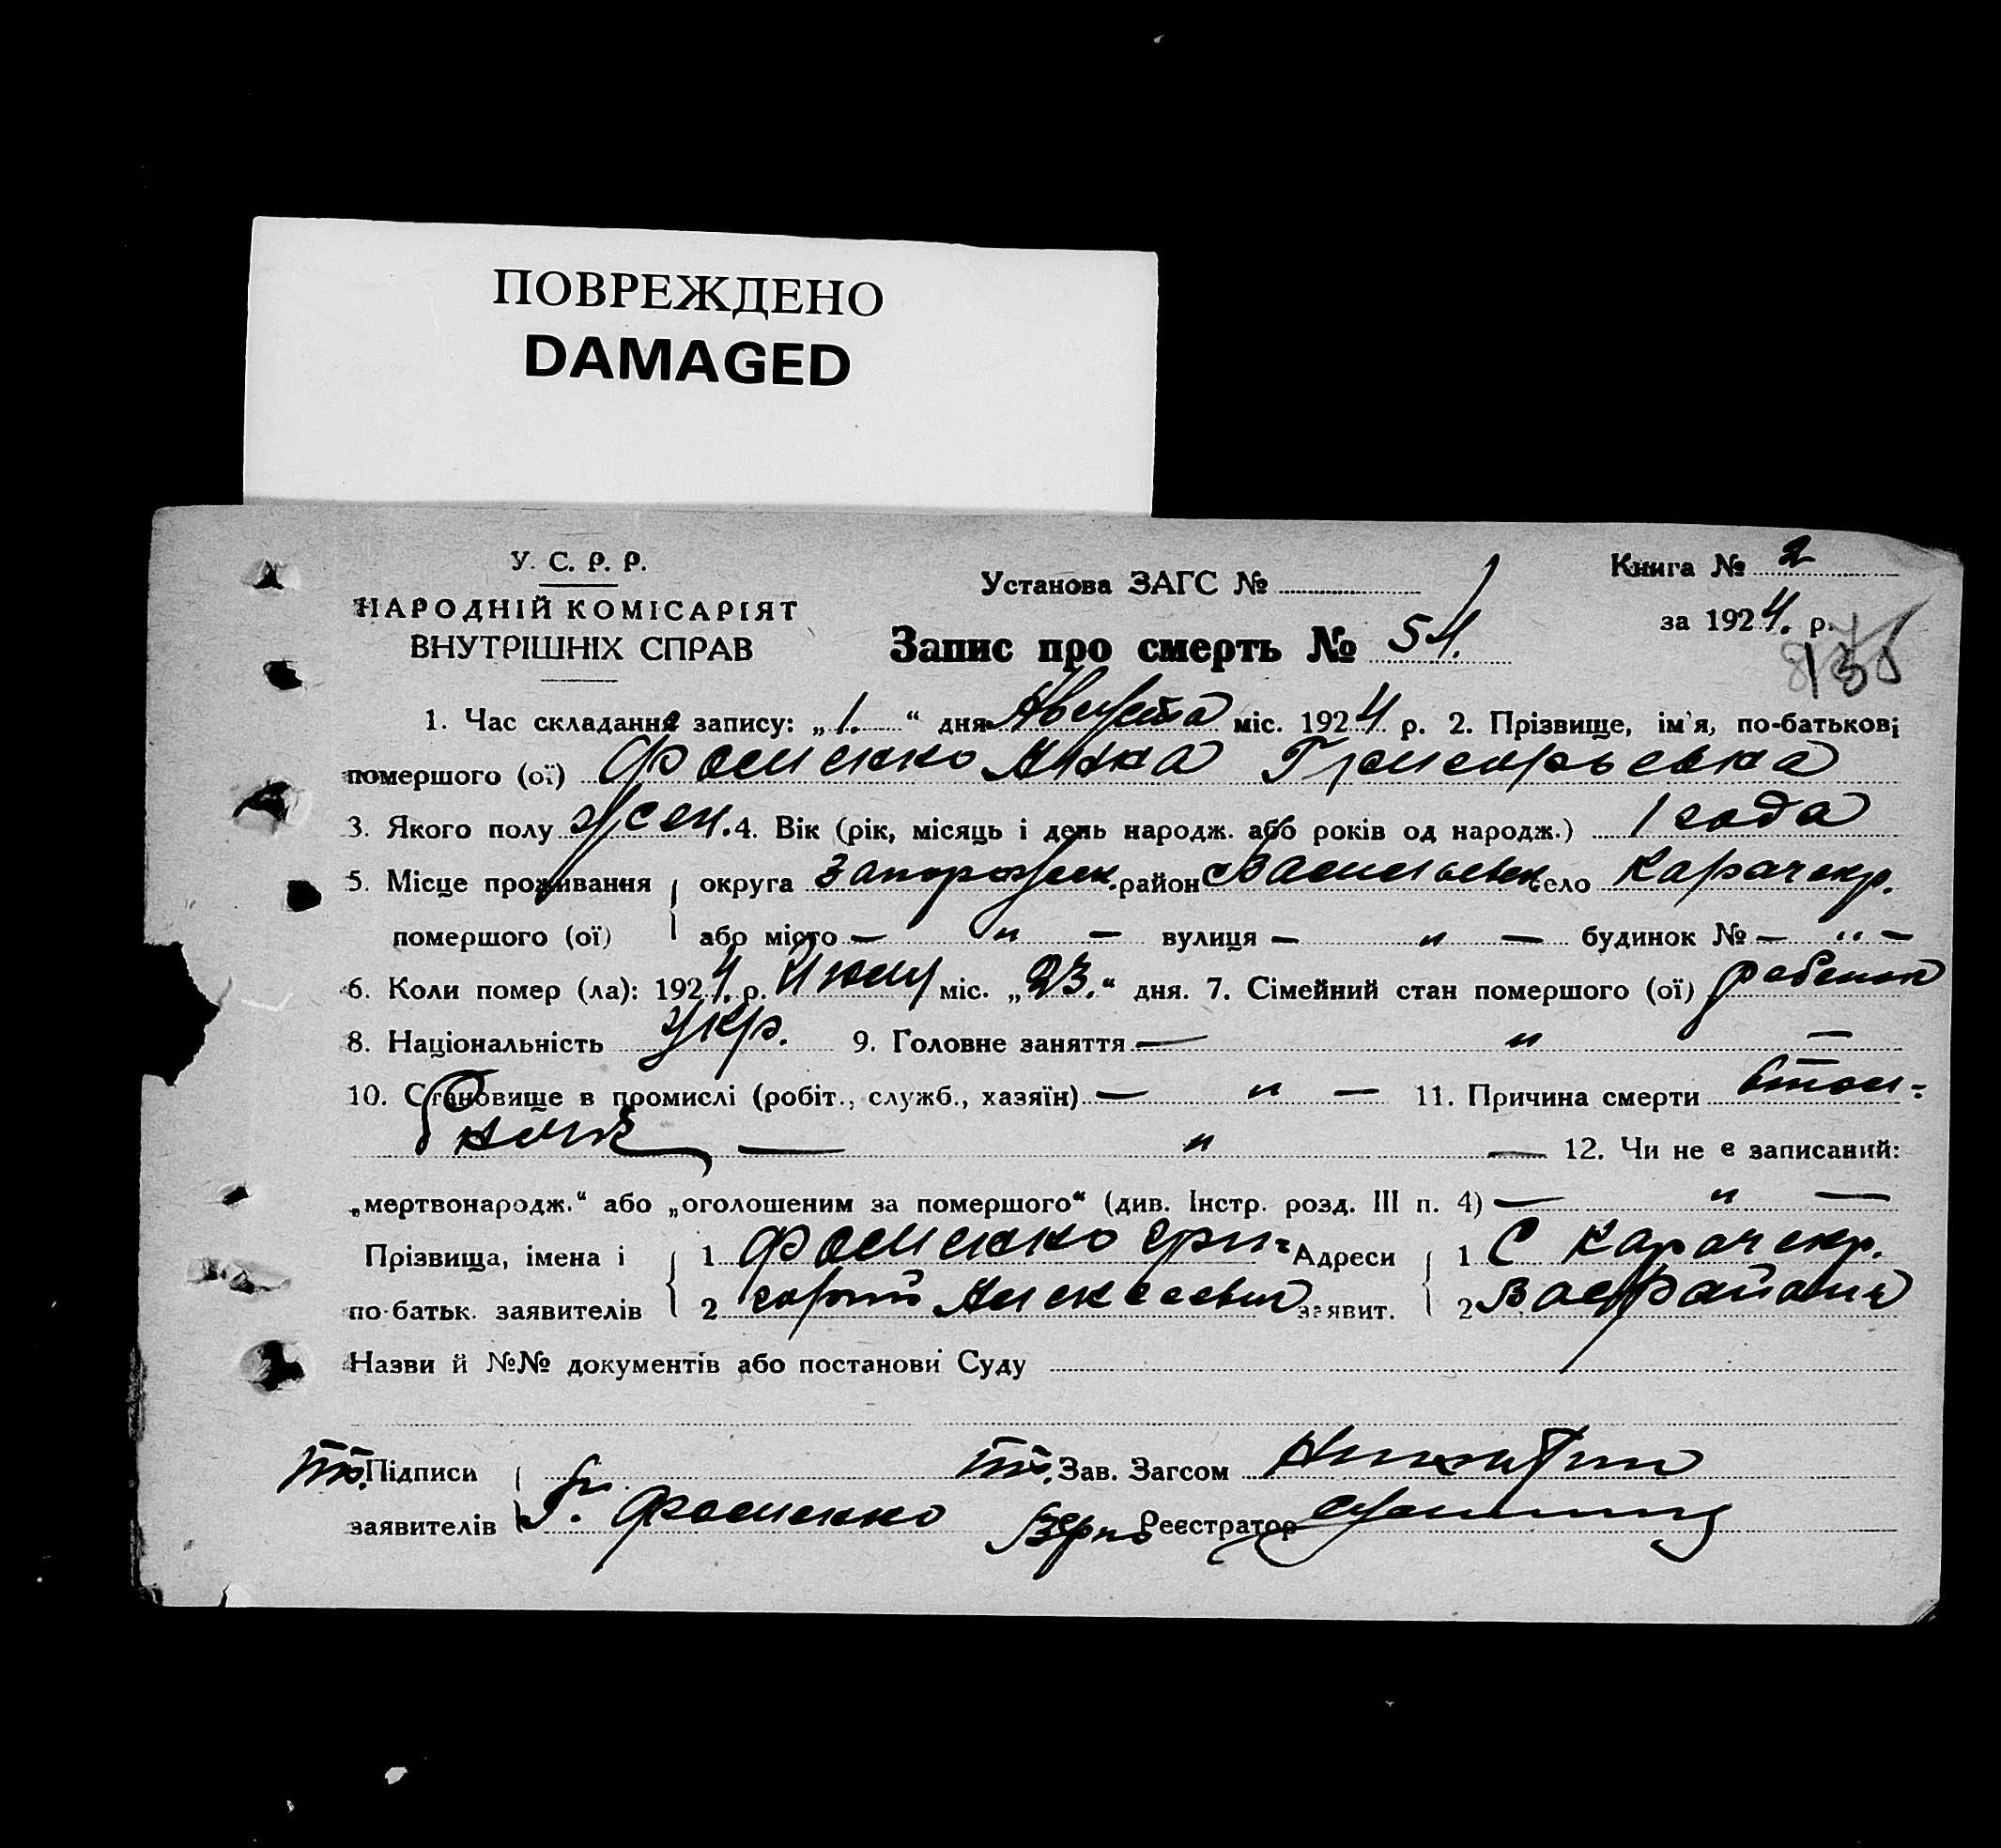 ПОВРЕЖДЕНО
DAMAGED
У. С. Р. Р.
НАРОДНІЙ КОМІСАРІЯТ
ВНУТРІШНІХ СПРАВ
Установа ЗАГС №
Запис про смерть № 54.
Книга № 2
за 1924. р.
1. Час складання запису: „1.“ дня Августа міс. 1924 р. 2. Прізвище, ім'я, по-батькові
помершого (ої) Фоменко Анна Григорьевна
3. Якого полу жен. 4. Вік (рік, місяць і день народж. або років од народж.) 1 года
5. Місце проживання округа Запорожск. район Васильевск село Карачекр.
помершого (ої) або місто — " — вулиця — " — будинок № — " —
6. Коли помер (ла): 1924. р. Июля міс. „23.“ дня. 7. Сімейний стан помершого (ої) ребенок
8. Національність укр. 9. Головне заняття — " —
10. Становище в промислі (робіт., служб., хазяїн) — " — 11. Причина смерти
— " — 12. Чи не є записаний:
„мертвонародж.“ або „оголошеним за помершого“ (див. Інстр. розд. III п. 4) — " —
Прізвища, імена і 1 Фоменко Гри- Адреси 1 С Карачекр.
по-батьк. заявителів 2 горий Алексеевич заявит. 2 Вас. района
Назви й №№ документів або постанови Суду
Підписи Зав. Загсом
заявителів Г. Фоменко Верно Реєстратор